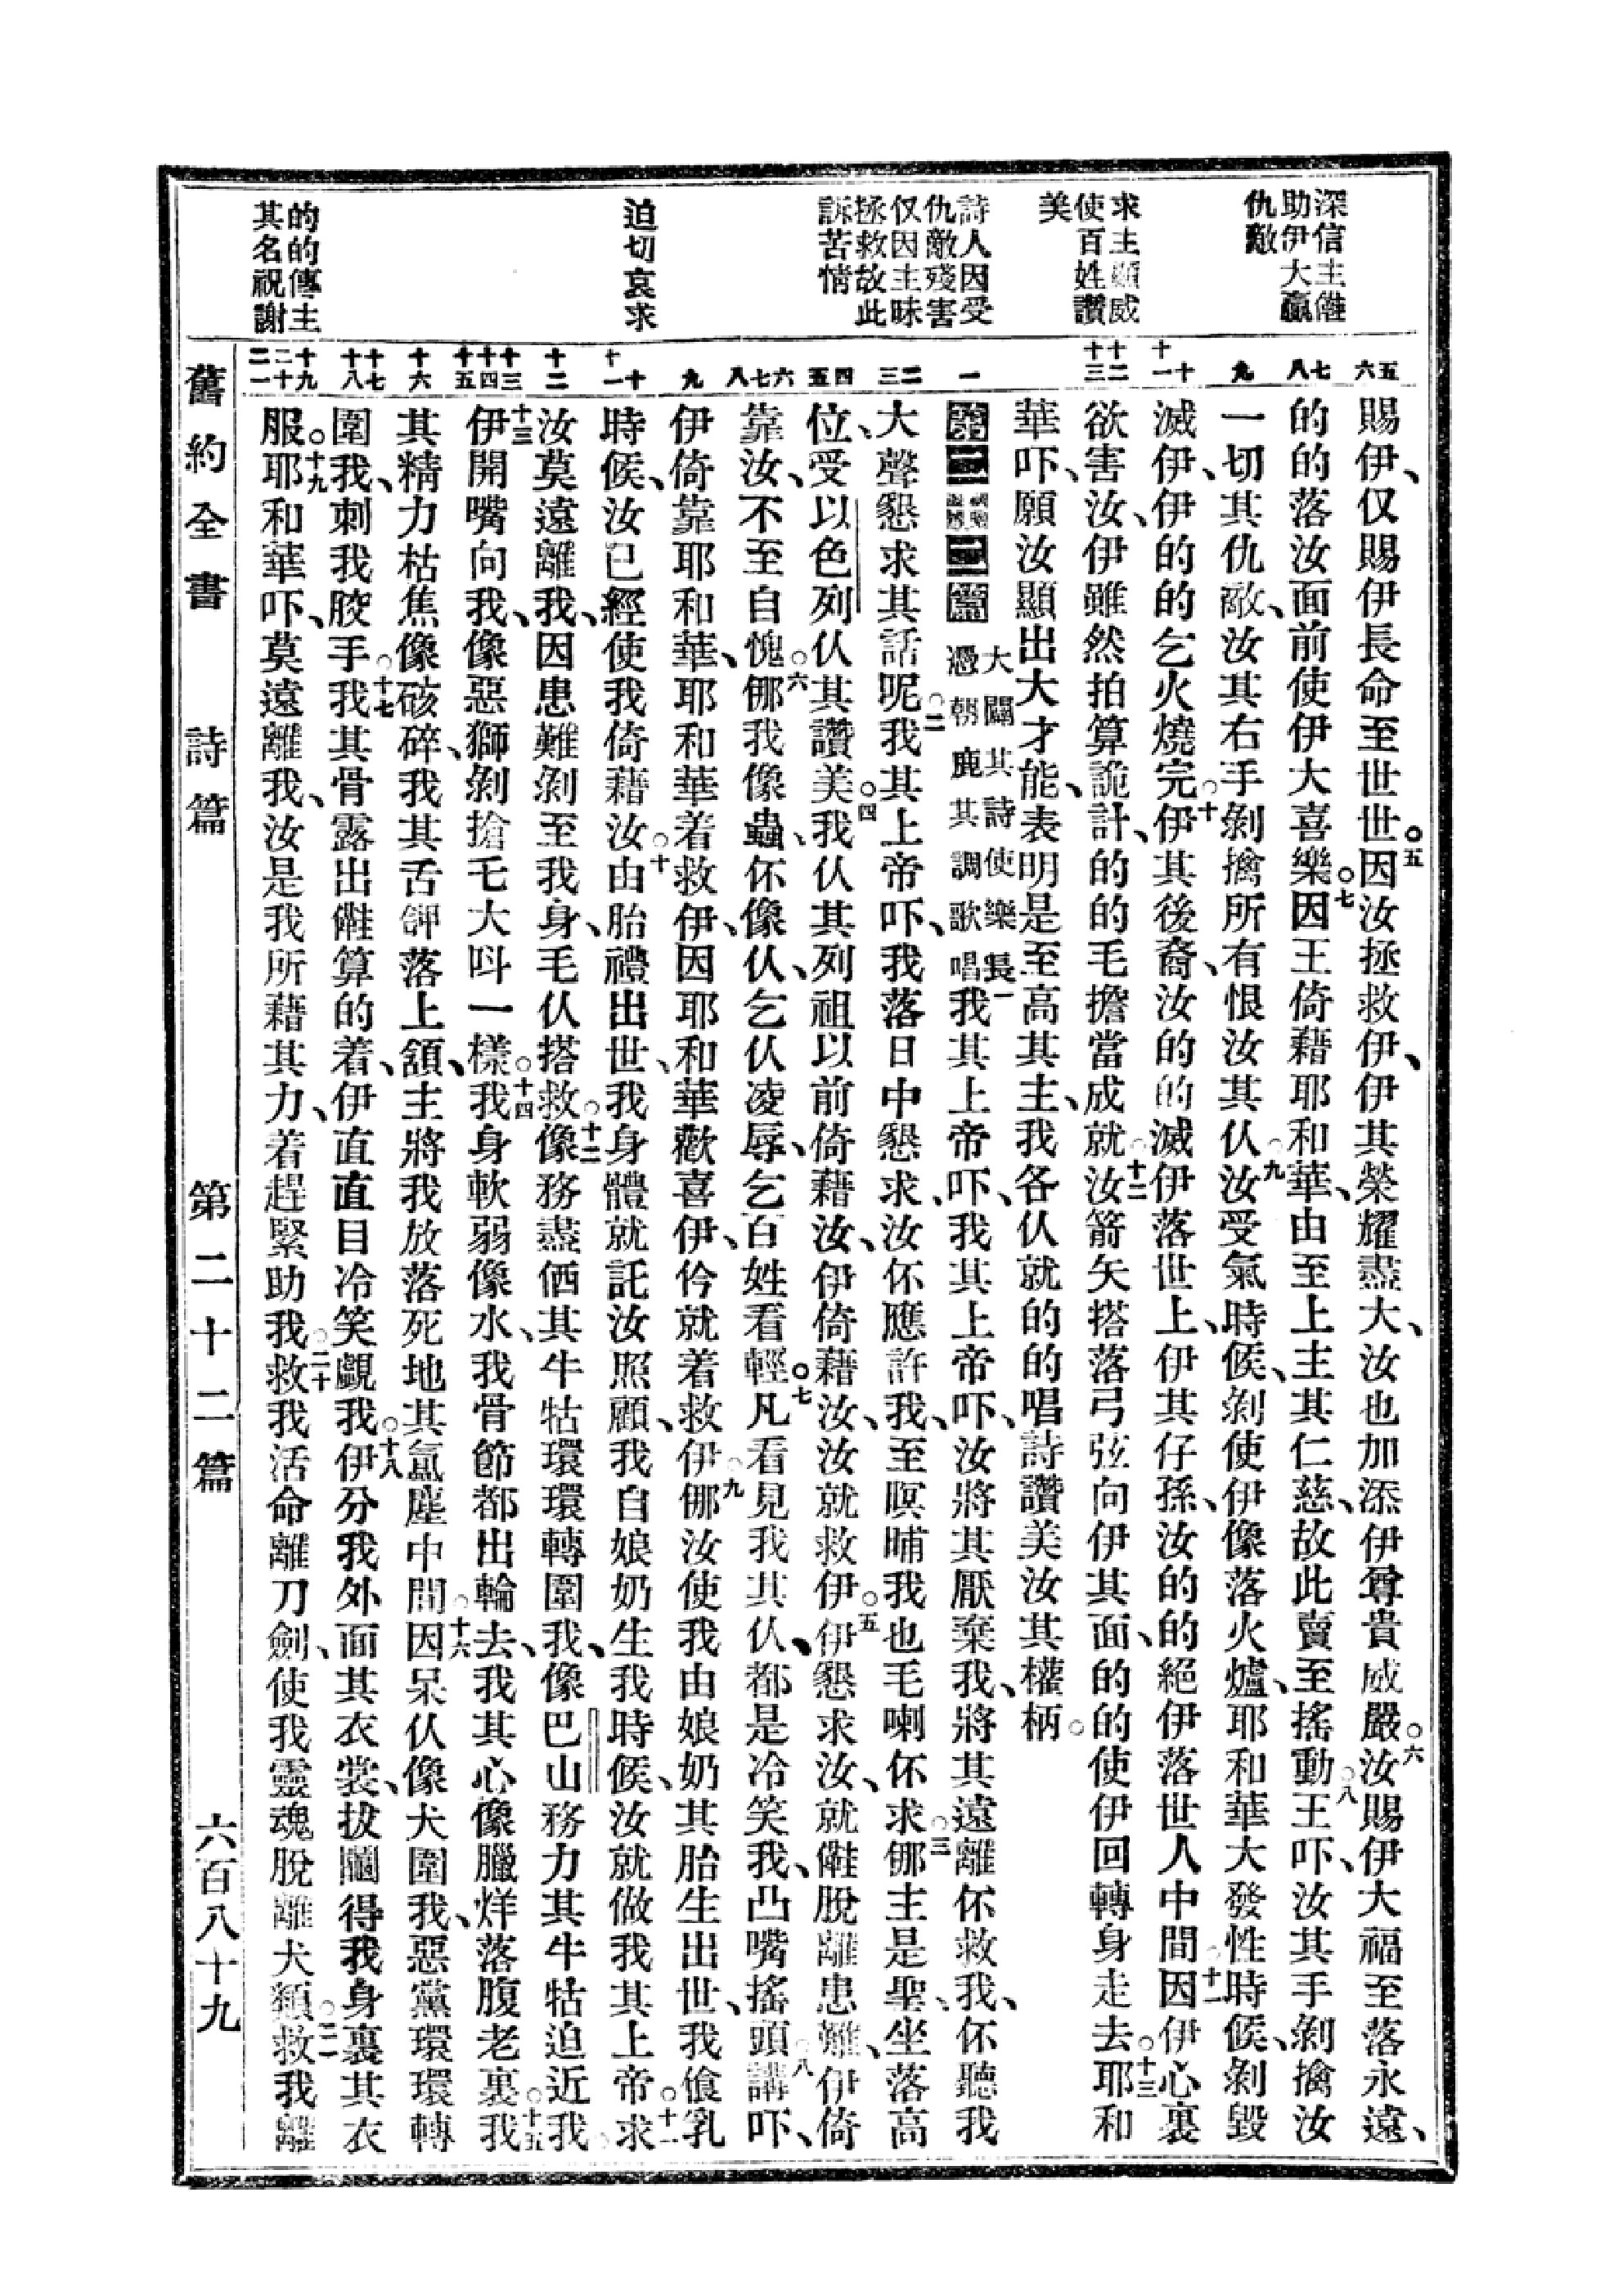 深信主㒰
助伊大贏
仇敵
求主顯威
使百姓讚
美
詩人因受
仇敵殘害
仅因主昧
拯救故此
訴苦情
迫切哀求
的的傳主
其名祝謝
五 六 七 八 九 十 十一 十二 十三 一 二 三 四 五 六 七 八 九 十 十一 十二 十三 十四 十五 十六 十七 十八 十九 二十 二一
賜伊、仅賜伊長命至世世。五因汝拯救伊、伊其榮耀盡大、汝也加添伊尊貴威嚴。六汝賜伊大福至落永遠、
的的落汝面前使伊大喜樂。七因王倚藉耶和華、由至上主其仁慈、故此賣至搖動。八王吓、汝其手剝擒汝
一切其仇敵、汝其右手剝擒所有恨汝其仈。九汝受氣時候、剝使伊像落火爐、耶和華大發性時候、剝毀
滅伊、伊的的乞火燒完。十伊其後裔、汝的的滅伊落世上、伊其仔孫、汝的的絕伊落世人中間。十一因伊心裏
欲害汝、伊雖然拍算詭計、的的毛擔當成就。十二汝箭矢搭落弓弦向伊其面、的的使伊回轉身走去。十三耶和
華吓、願汝顯出大才能、表明是至高其主、我各仈就的的唱詩讚美汝其權柄。
第二十二篇 大闢其詩使樂長一憑朝鹿其調歌唱 我其上帝吓、我其上帝吓、汝將其厭棄我、將其遠離伓救我、伓聽我
大聲懇求其話呢。二我其上帝吓、我落日中懇求、汝伓應許我、至暝晡我也毛喇伓求。三㑚主是聖、坐落高
位、受以色列仈其讚美。四我仈其列祖以前倚藉汝、伊倚藉汝、汝就救伊。五伊懇求汝、就㒰脫離患難、伊倚
靠汝、不至自愧。六㑚我像蟲、伓像仈、乞仈凌辱、乞百姓看輕。七凡看見我其仈、都是冷笑我、凸嘴搖頭講吓、八
伊倚靠耶和華、耶和華着救伊、因耶和華歡喜伊、伶就着救伊。九㑚汝使我由娘奶其胎生出世、我飱乳
時候、汝已經使我倚藉汝。十由胎禮出世、我身體就託汝照顧、我自娘奶生我時候、汝就做我其上帝。十一求
汝莫遠離我、因患難剝至我身、毛仈搭救。十二像務盡㑚其牛牯環環轉圍我、像巴山務力其牛牯迫近我。
十三伊開嘴向我、像惡獅剝搶乇大呌一樣。十四我身軟弱像水、我骨節都出輪去、我其心像臘烊落腹老裏。十五我
其精力枯焦像硋碎、我其舌鉀落上頷、主將我放落死地其氳塵中間。十六因呆仈像犬圍我、惡黨環環轉
圍我、刺我骹手。十七我其骨露出㒰算的着、伊直直目冷笑覷我。十八伊分我外面其衣裳、拔鬮得我身裏其衣
服。十九耶和華吓、莫遠離我、汝是我所藉其力、着趕緊助我。二十救我活命離刀劍、使我靈魂脫離犬類。二一救我離
舊約全書 詩篇 第二十二篇 六百八十九